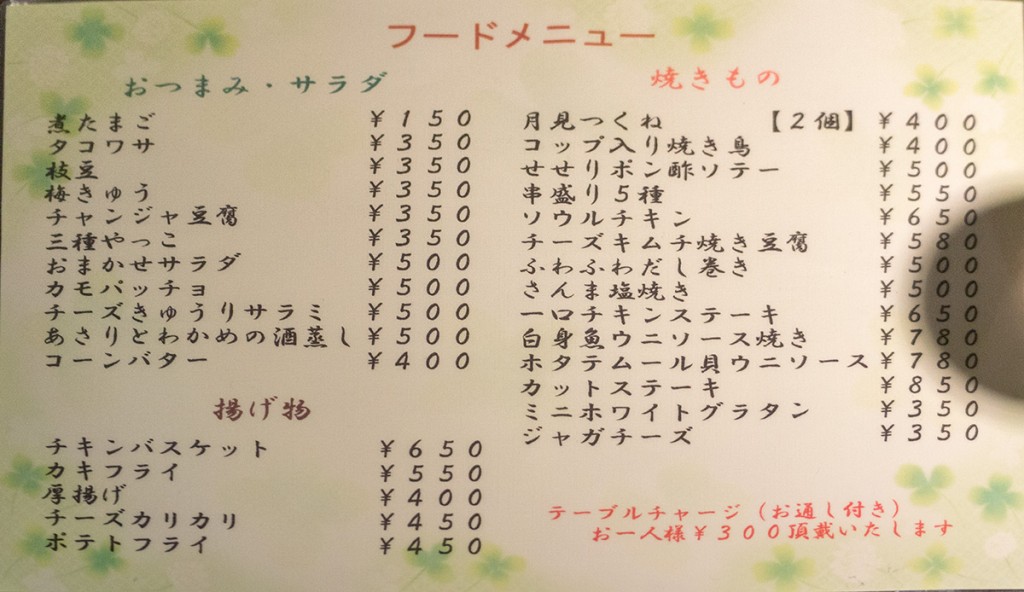 フードメニュー
おつまみ・サラダ
煮たまご ¥150
タコワサ ¥350
枝豆 ¥350
梅きゅう ¥350
チャンジャ豆腐 ¥350
三種やっこ ¥350
おまかせサラダ ¥500
カモパッチョ ¥500
チーズきゅうりサラミ ¥500
あさりとわかめの酒蒸し ¥500
コーンバター ¥400
揚げ物
チキンバスケット ¥650
カキフライ ¥550
厚揚げ ¥400
チーズカリカリ ¥450
ポテトフライ ¥450
焼きもの
月見つくね 【2個】 ¥400
コップ入り焼き鳥 ¥400
せせりポン酢ソテー ¥500
串盛り5種 ¥550
ソウルチキン ¥650
チーズキムチ焼き豆腐 ¥580
ふわふわだし巻き ¥500
さんま塩焼き ¥500
一口チキンステーキ ¥650
白身魚ウニソース焼き ¥780
ホタテムール貝ウニソース ¥780
カットステーキ ¥850
ミニホワイトグラタン ¥350
ジャガチーズ ¥350
テーブルチャージ(お通し付き)
お一人様¥300頂戴いたします